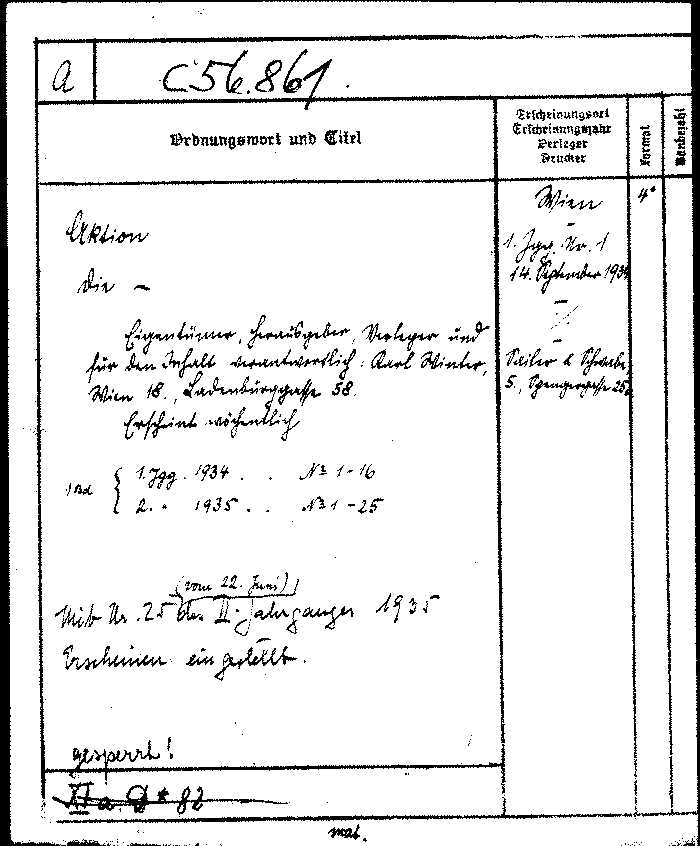 a
C 56.861.
Ordnungswort und Titel
Erscheinungsort
Erscheinungsjahr
Verleger
Drucker
Format
Bändezahl
Aktion
Die —
Eigentümer, Herausgeber, Verleger und
für den Inhalt verantwortlich: Karl Winter,
Wien 18., Ladenburggasse 58.
Erscheint wöchentlich
1 Bd. { 1. Jgg. 1934 . . No 1-16
2. " 1935 . . No 1-25
(vom 22. Juni)
Mit Nr. 25 des II. Jahrganges 1935
Erscheinen eingestellt.
gesperrt!
XI a D * 82
mat.
Wien
—
1. Jgg. Nr. 1
14. September 1934
—
./.
—
Sailer & Schwabe
5., Spengergasse 25
4°